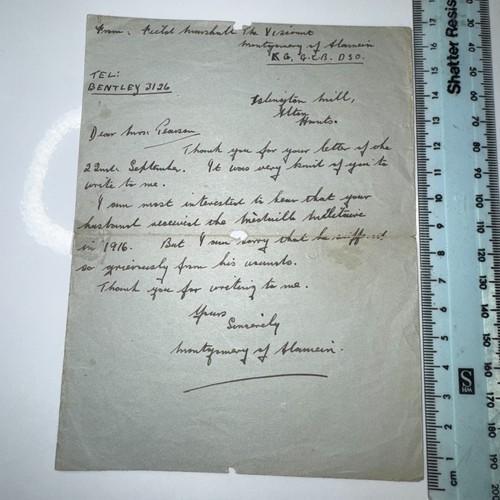 From: Field Marshall The Viscount
Montgomery of Alamein
K.G. G.C.B. DSO.
TEL:
BENTLEY 3126
Islington Mill,
Alton,
Hants.
Dear Mrs: Pearson
Thank you for your letter of the
22nd September. It was very kind of you to
write to me.
I am most interested to hear that your
husband received the Medaille Militaire
in 1916. But I am sorry that he suffered
so grievously from his wounds.
Thank you for writing to me.
Yours
Sincerely
Montgomery of Alamein.
Shatter Resis
S
H/W
cm 1 2 3 4 5 6 7 8 9 10 11 12 13 14 15